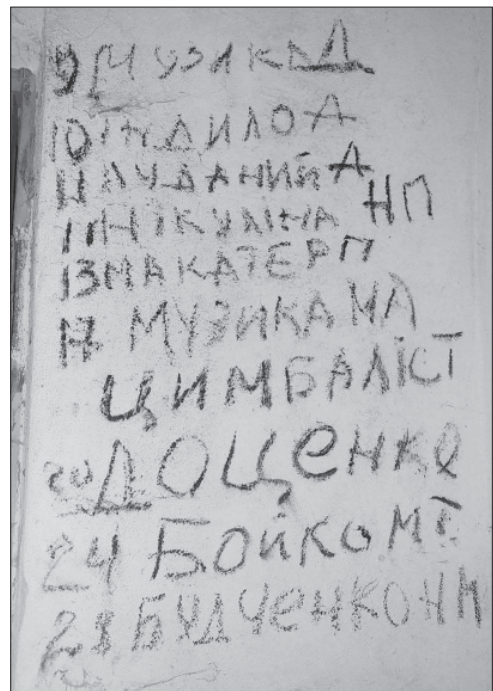 9 МУЗИКА Д
10 ІНДИЛО А
11 ЛУДАНИЙ А
11 НІКУЛІНА НП
13 МАКАТЕР П
17 МУЗИКА НА
ЦИМБАЛІСТ
20 ДОЦЕНКО
24 БОЙКО МТ
28 БУДЧЕНКО НН